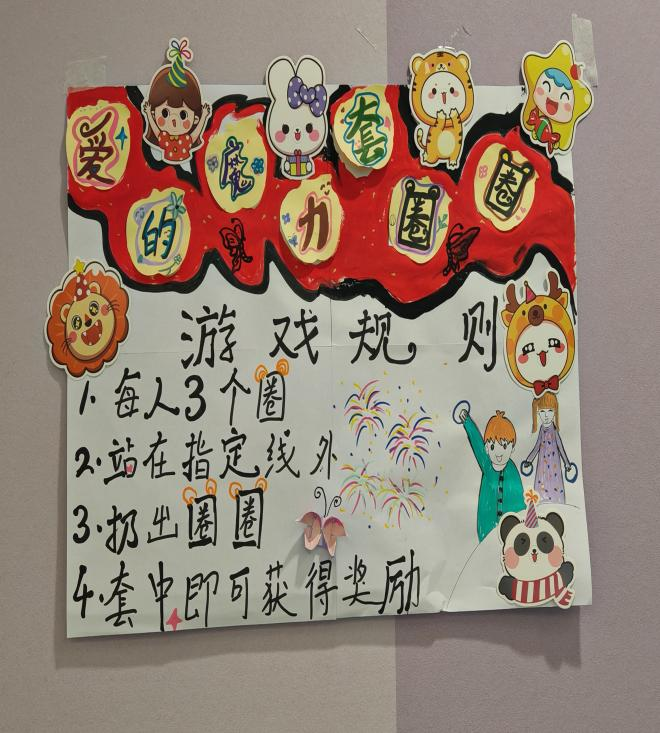 爱的魔力套圈圈
游戏规则
1.每人3个圈
2.站在指定线外
3.扔出圈圈
4.套中即可获得奖励